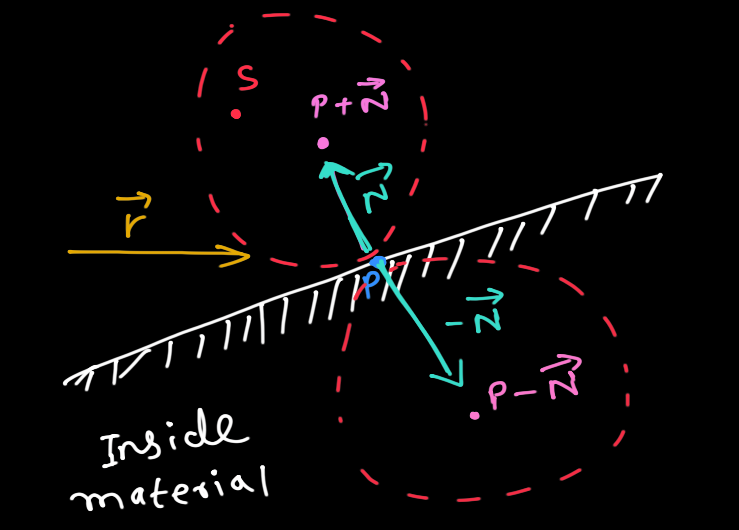 S
P + N⃗
N⃗
r⃗
P
- N⃗
P - N⃗
Inside
material